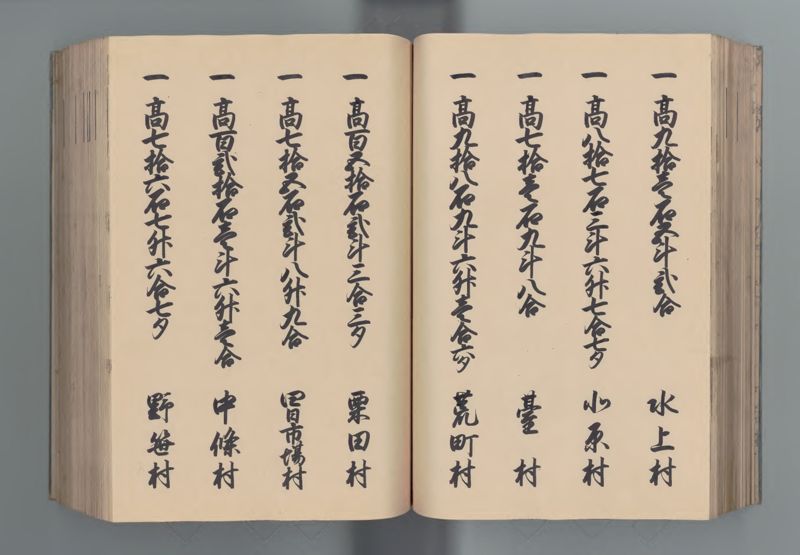 一 高九拾壱石五斗弐合 水上村
一 高八拾七石三斗六升七合七夕 小原村
一 高七拾壱石九斗八合 臺村
一 高九拾八石九斗六升壱合六夕 荒町村
一 高百五拾石弐斗三合三夕 栗田村
一 高七拾五石弐斗八升九合 四日市場村
一 高百弐拾石壱斗六升壱合 中條村
一 高七拾六石七升六合七夕 野笹村